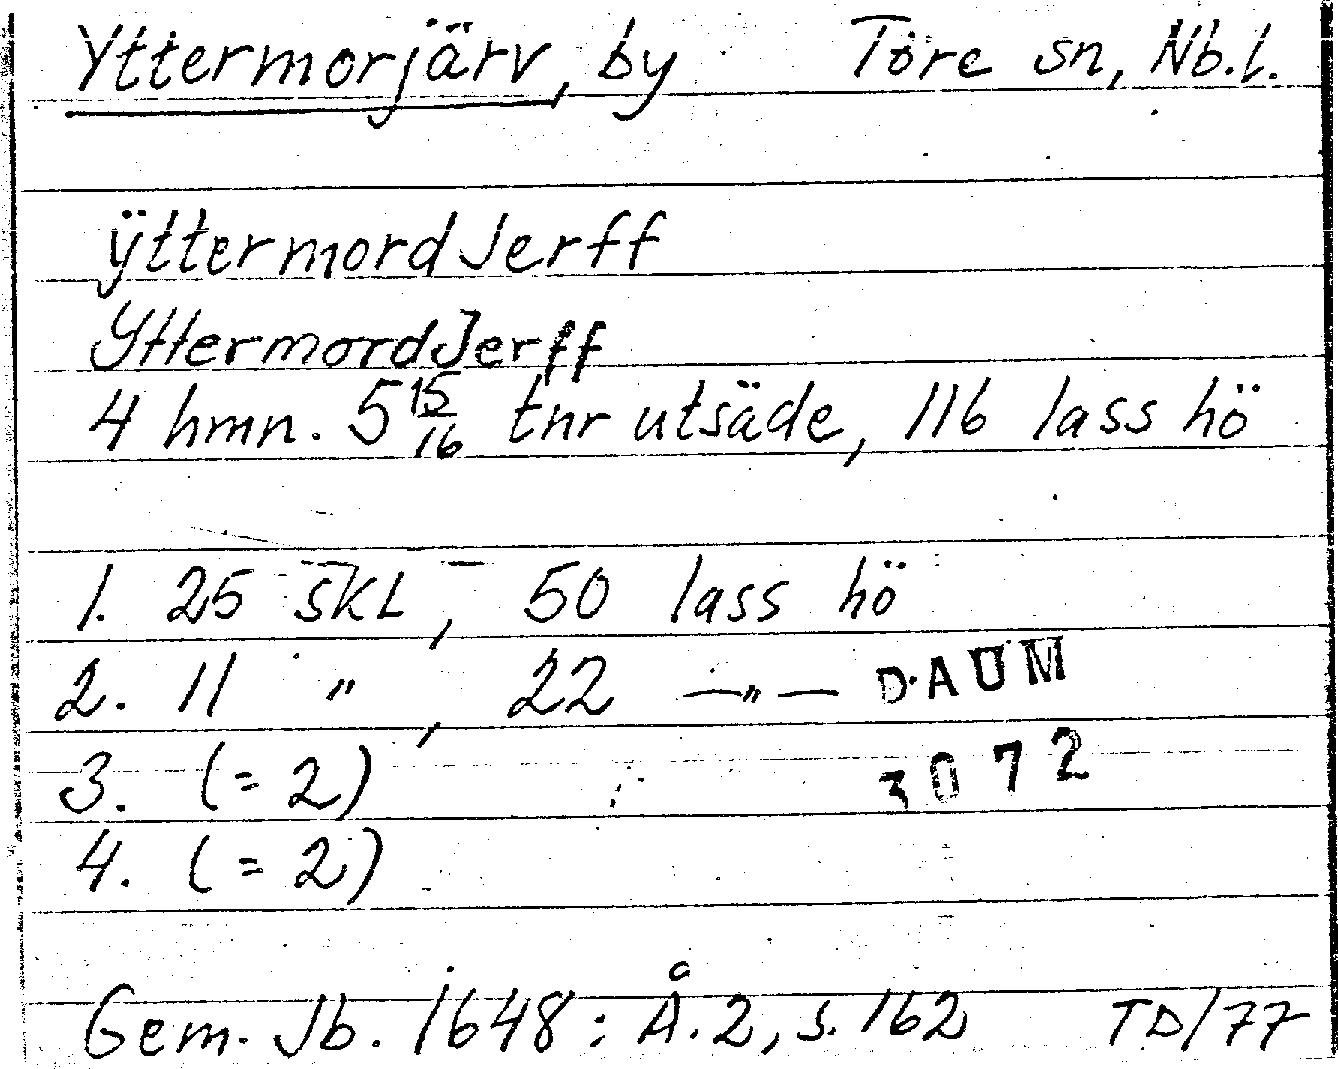 Yttermorjärv, by Töre sn, Nb.l.
ÿttermordJerff
YttermordJerff
4 hmn. 5 15/16 tnr utsäde, 116 lass hö
1. 25 skl, 50 lass hö
2. 11 ", 22 —"— DAUM
3. (= 2) 3072
4. (= 2)
Gem. Jb. 1648: Å.2, s. 162 TD/77